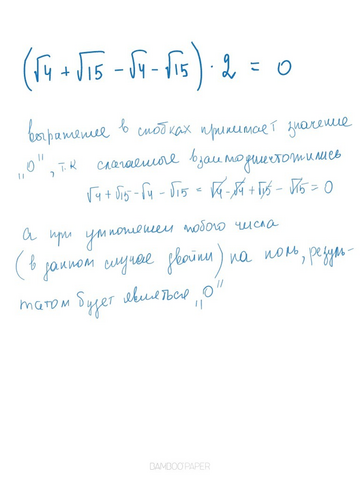 (√4 + √15 − √4 − √15) · 2 = 0
выражение в скобках принимает значение
„0", т.к слагаемые взаимоуничтожились
√4 + √15 − √4 − √15 = √4 − √4 + √15 − √15 = 0
а при умножении любого числа
(в данном случае двойки) на ноль, резуль-
татом будет являться „0"
BAMBOO PAPER